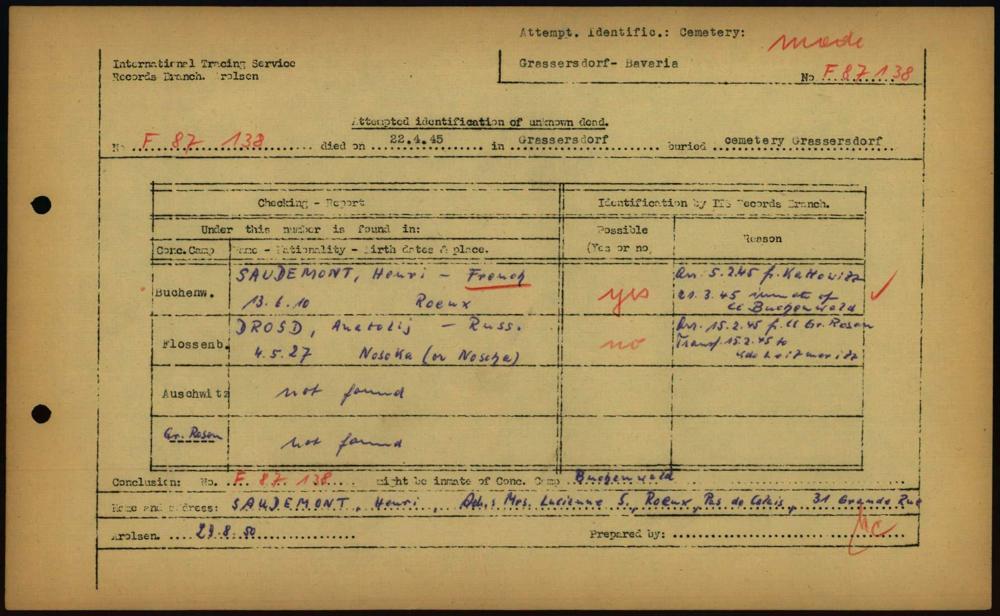 Attempt. Identific.: Cemetery:
made
International Tracing Service
Records Branch. Arolsen
Grassersdorf- Bavaria
No F 87 138
Attempted identification of unknown dead.
No F 87 138 died on 22.4.45 in Grassersdorf buried cemetery Grassersdorf
Checking - Report
Identification by ITS Records Branch.
Under this number is found in:
Possible
(Yes or no)
Reason
Conc.Camp
Name - Nationality - Birth dates & place.
Buchenw.
SAUDEMONT, Henri - French
13.6.10 Roeux
yes
Arr. 5.2.45 f. Kattowitz
21.3.45 inmate of
CC Buchenwald
Flossenb.
DROSD, Anatolij - Russ.
4.5.27 Nosoka (or Noscha)
no
Arr. 15.2.45 f. CC Gr. Rosen
Transf. 15.2.45 to
Kdo Leitmeritz
Auschwitz
not found
Gr. Rosen
not found
Conclusion: No. F 87 138 might be inmate of Conc. Camp Buchenwald
Name and address: SAUDEMONT, Henri, Adr.: Mrs. Lucienne S., Roeux, Pas de Calais, 31 Grande Rue
Arolsen. 29.8.50 Prepared by: